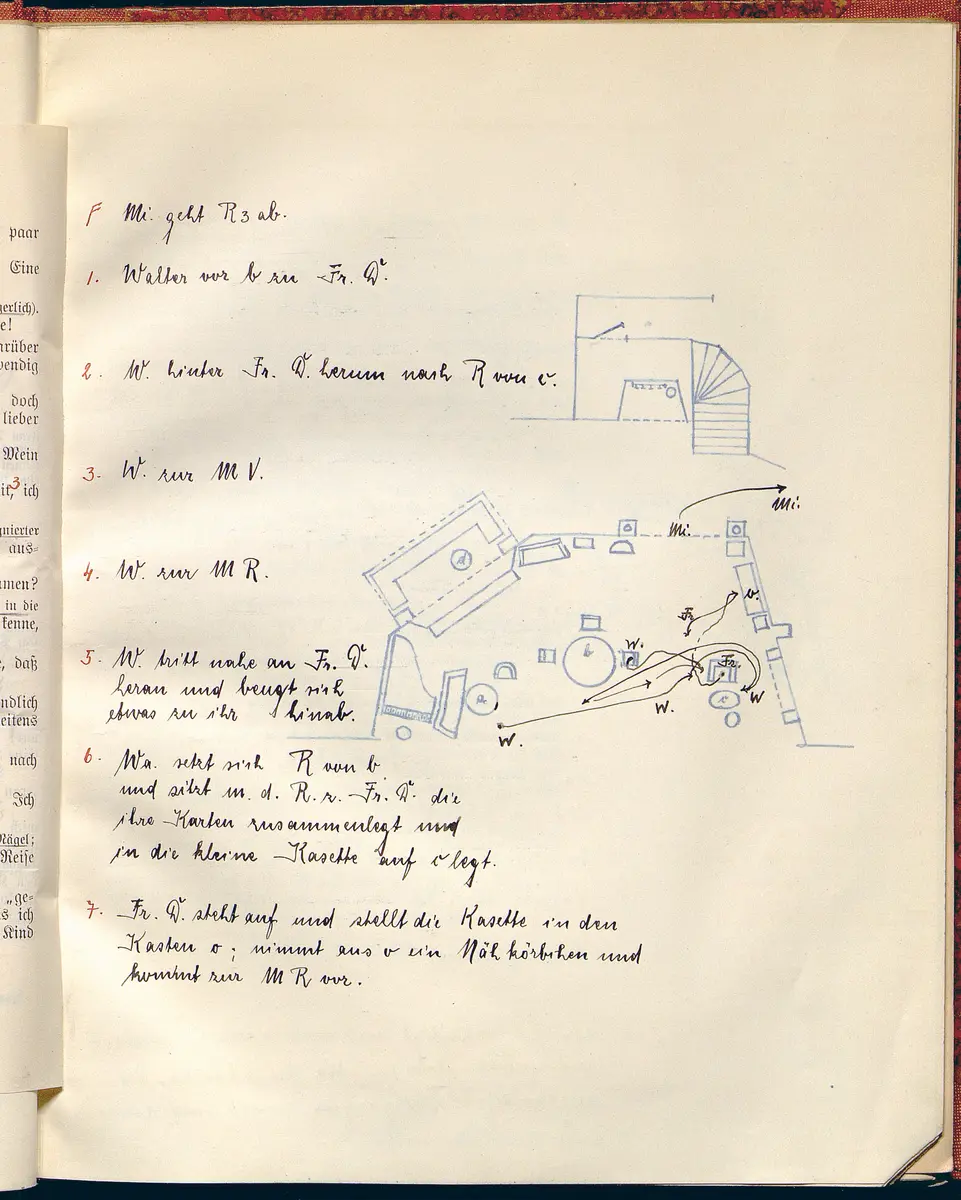 paar
Eine
gerlich).
e!
rüber
wendig
doch
lieber
Mein
3
it, ich
gnierter
aus=
men?
in die
kenne,
, daß
ndlich
eitens
nach
Ich
Nägel;
Reise
„ge-
s ich
Kind
F Mi. geht R3 ab.
1. Walter vor b zu Fr. Dr.
2. W. hinter Fr. Dr. herum nach R von c.
3. W. zur M V.
4. W. zur M R.
5. W. tritt nahe an Fr. Dr.
heran und beugt sich
etwas zu ihr hinab.
6. Wa. setzt sich R von b
und sitzt m. d. R. z. Fr. Dr. die
ihre Karten zusammenlegt und
in die kleine Kasette auf c legt.
7. Fr. Dr. steht auf und stellt die Kasette in den
Kasten o; nimmt aus o ein Nähkörbchen und
kommt zur M R vor.
Mi.
Mi.
d
o.
Fr.
b
W.
Fr.
a
W.
W
c
W.